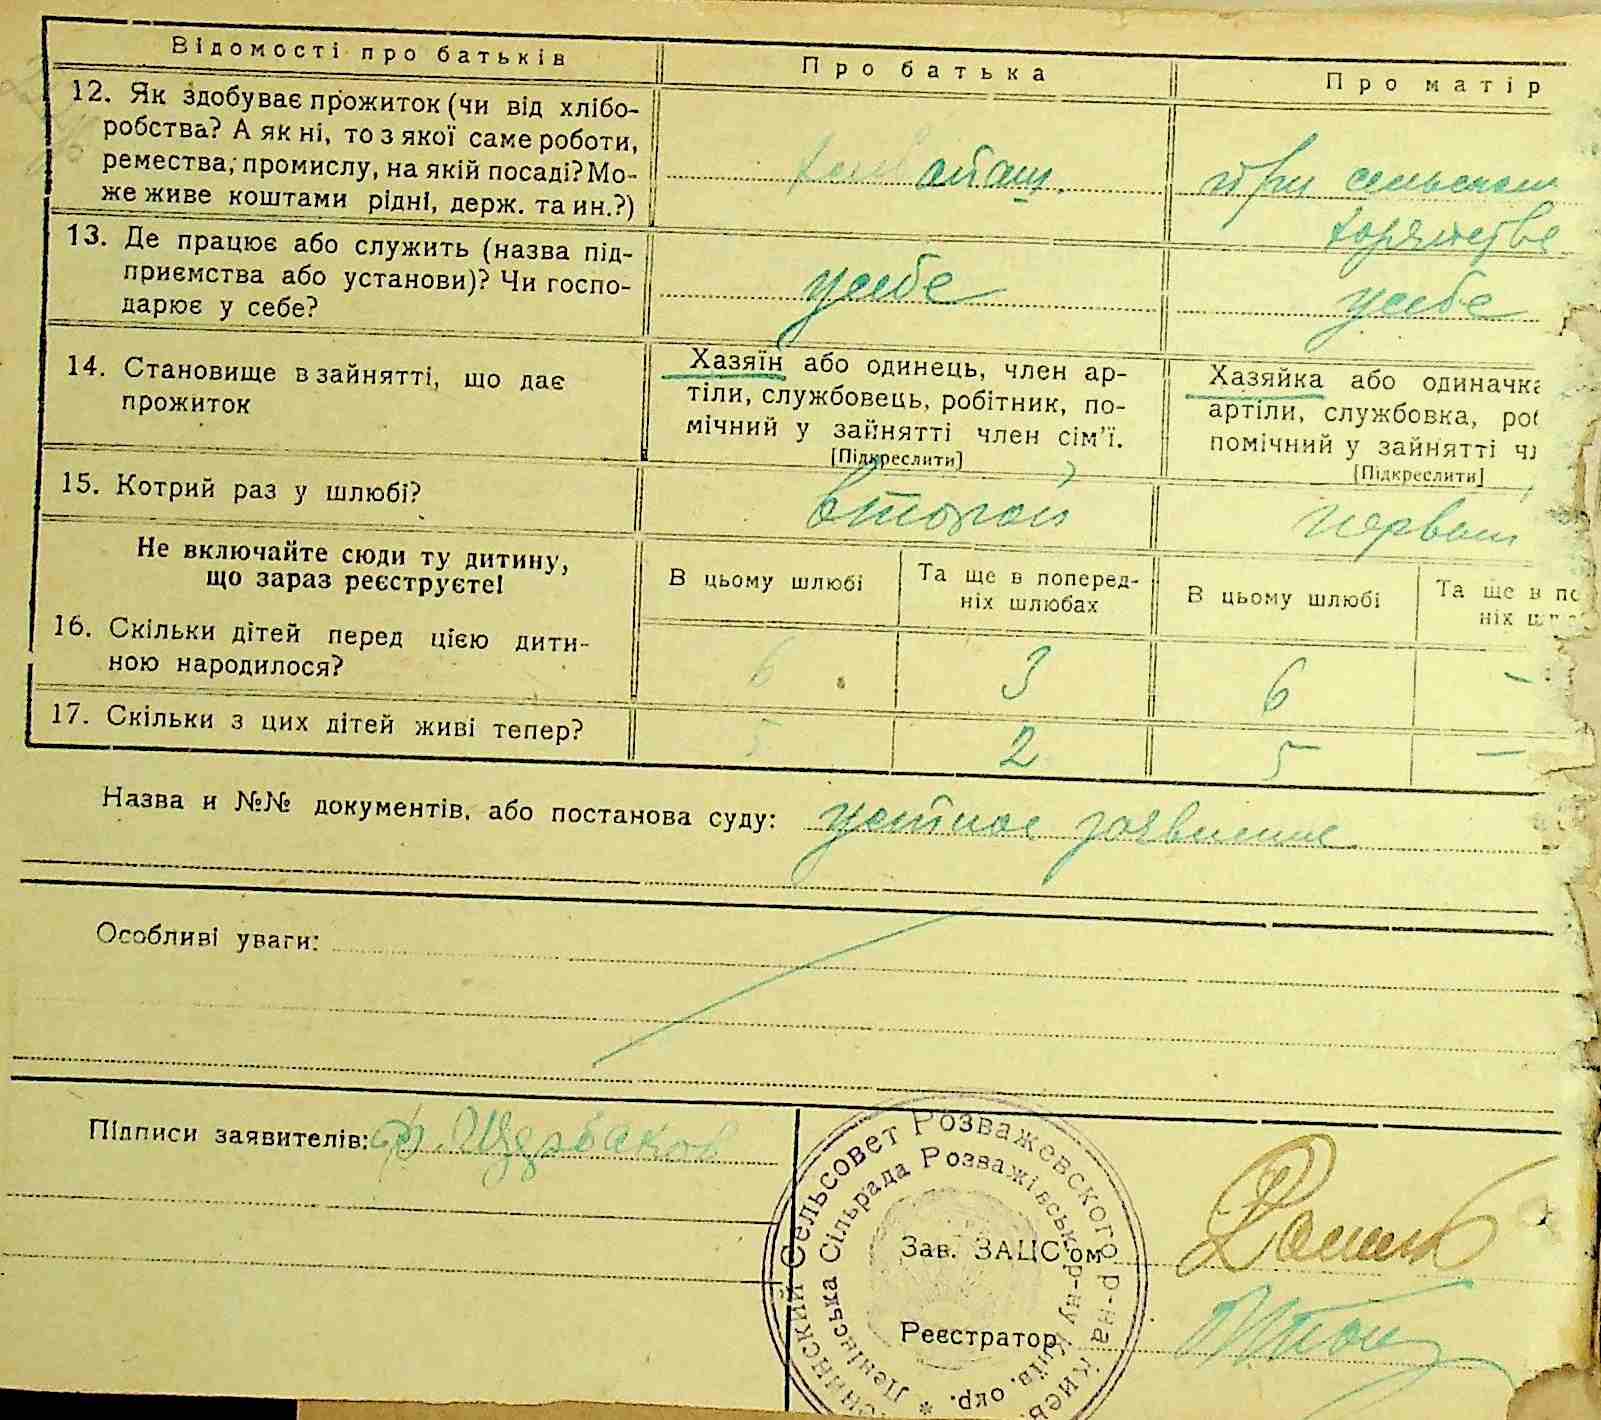 Відомості про батьків
Про батька
Про матір
12. Як здобуває прожиток (чи від хлібо-
робства? А як ні, то з якої саме роботи,
ремества, промислу, на якій посаді? Мо-
же живе коштами рідні, держ. та ин.?)
при сельском
13. Де працює або служить (назва під-
приємства або установи)? Чи госпо-
дарює у себе?
у себе
у себе
14. Становище в зайнятті, що дає
прожиток
Хазяїн або одинець, член ар-
тіли, службовець, робітник, по-
мічний у зайнятті член сім'ї.
[Підкреслити]
Хазяйка або одиначка
артіли, службовка, роб
помічний у зайнятті чл
[Підкреслити]
15. Котрий раз у шлюбі?
второй
первый
Не включайте сюди ту дитину,
що зараз реєструєте!
В цьому шлюбі
Та ще в поперед-
ніх шлюбах
В цьому шлюбі
Та ще в по
ніх шл
16. Скільки дітей перед цією дити-
ною народилося?
6 3 6 -
17. Скільки з цих дітей живі тепер?
5 2 5 -
Назва и №№ документів, або постанова суду: устное заявление
Особливі уваги:
Підписи заявителів: Щербаков
Сельсовет Розважевского р-на Киев.
Ленінська Сільрада Розважівськ. р-ну Київ. окр. *
Зав. ЗАЦС'ом
Реєстратор